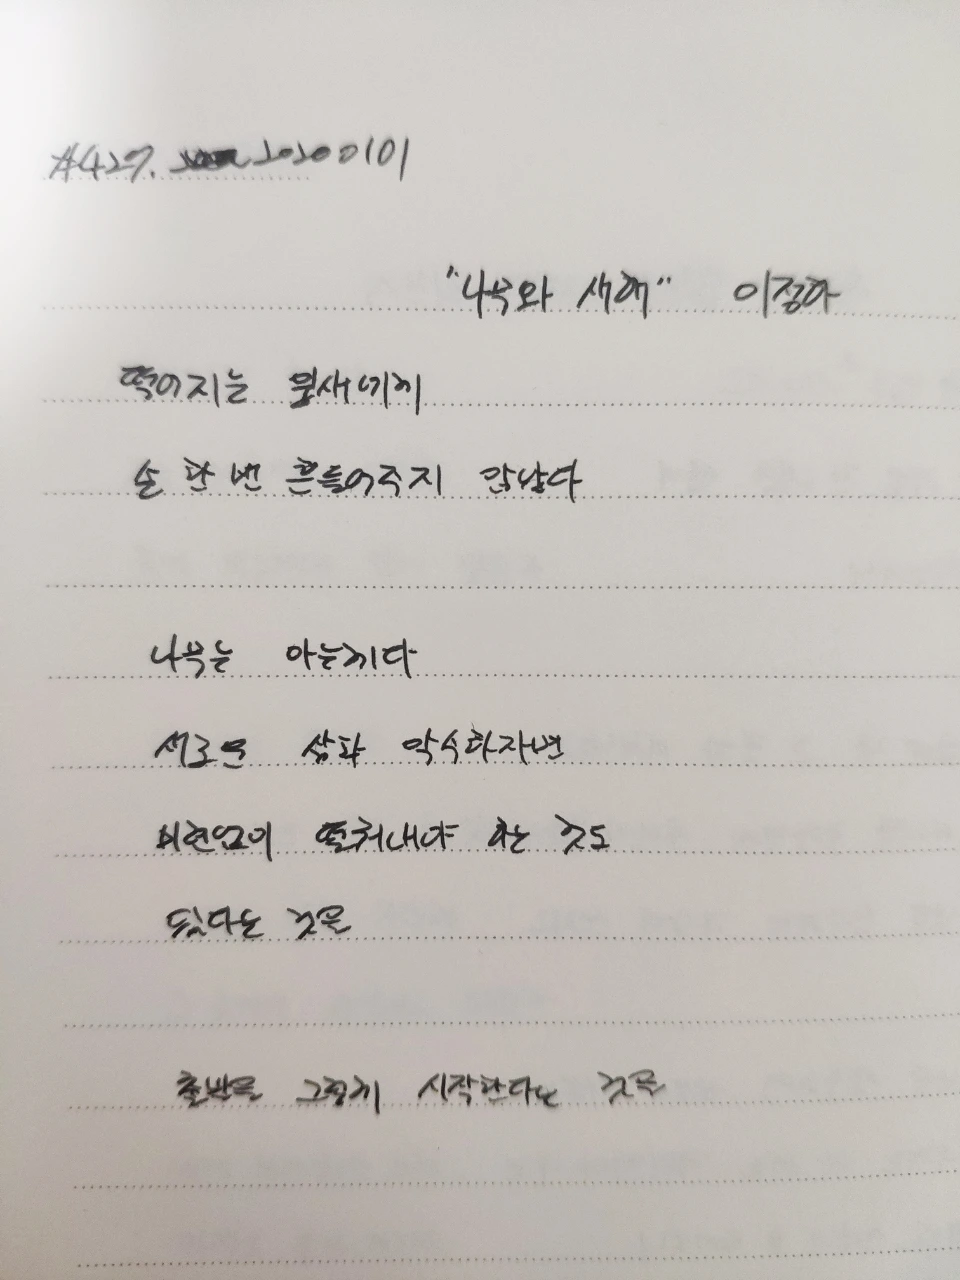 #427. 20200101
"나무와 새해" 이정하
떨어지는 잎새에게
손 한 번 흔들어주지 않았다
나무는 아는게다
새로운 삶과 악수하자면
미련없이 떨쳐내야 하는 것도
있다는 것을
출발은 그렇게 시작한다는 것을